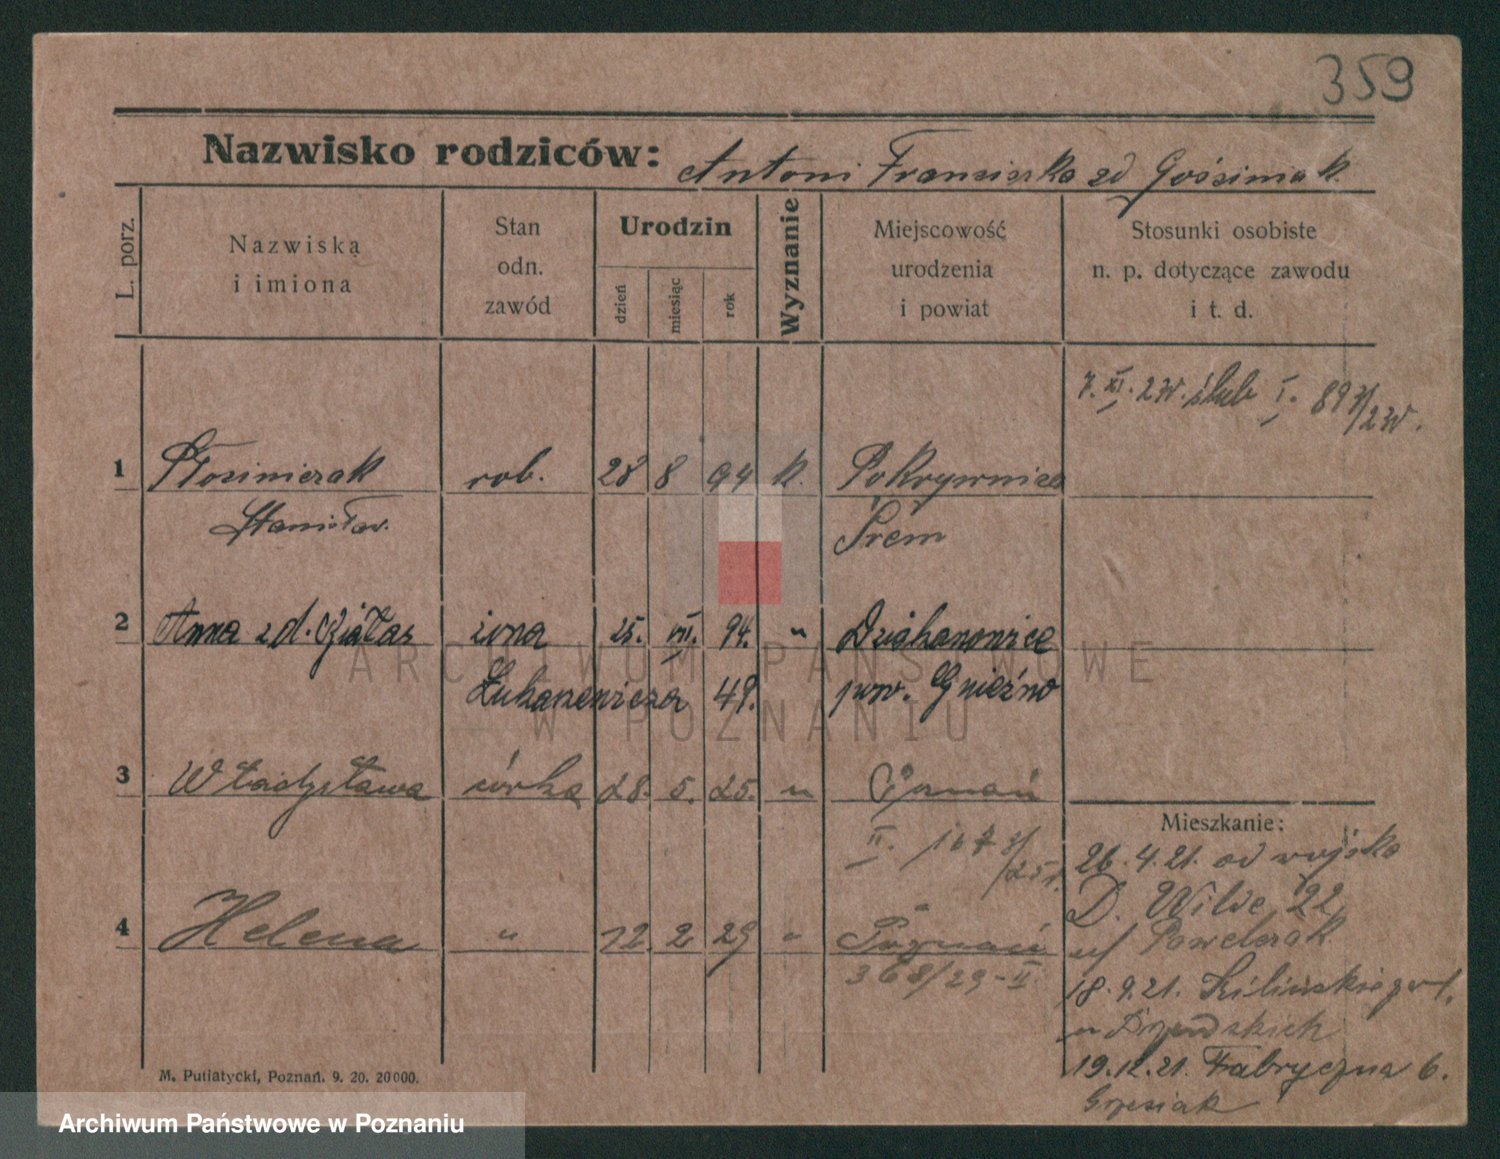 359
Nazwisko rodziców: Antoni Franciszka zd Gościniak
L. porz.
Nazwiska i imiona
Stan odn. zawód
Urodzin
dzień
miesiąc
rok
Wyznanie
Miejscowość urodzenia i powiat
Stosunki osobiste n. p. dotyczące zawodu i t. d.
7. XI. 24. ślub I. 893/24.
1 rob. 28 8 94 k. Pokrzywnica
Stanisław. Śrem
2 Anna zd. żona 25. VII. 94. " Dziekanowice
Łukaszewicza 49. pow. Gniezno
3 Władysława córka 28. 5. 25. " Poznań
II.
4 Helena " 12. 2 29 " Poznań
368/29-II.
Mieszkanie:
26.4.21. od wojska
D. Wilde 22
u/ Pawelczak
18.9.21. Kilińskiego 1.
u
19.12.21. Fabryczna 6.
Grzesiak
M. Putiatycki, Poznań. 9. 20. 20000.
ARCHIWUM PAŃSTWOWE
W POZNANIU
Archiwum Państwowe w Poznaniu